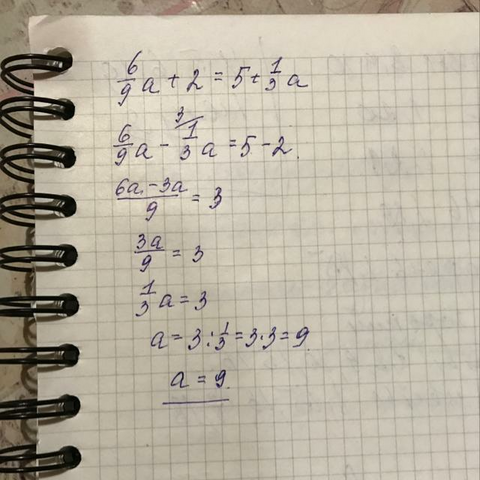 6/9 a + 2 = 5 + 1/3 a
6/9 a - 3/ 1/3 a = 5 - 2.
6a - 3a / 9 = 3
3a/9 = 3
1/3 a = 3
a = 3 : 1/3 = 3 · 3 = 9
a = 9